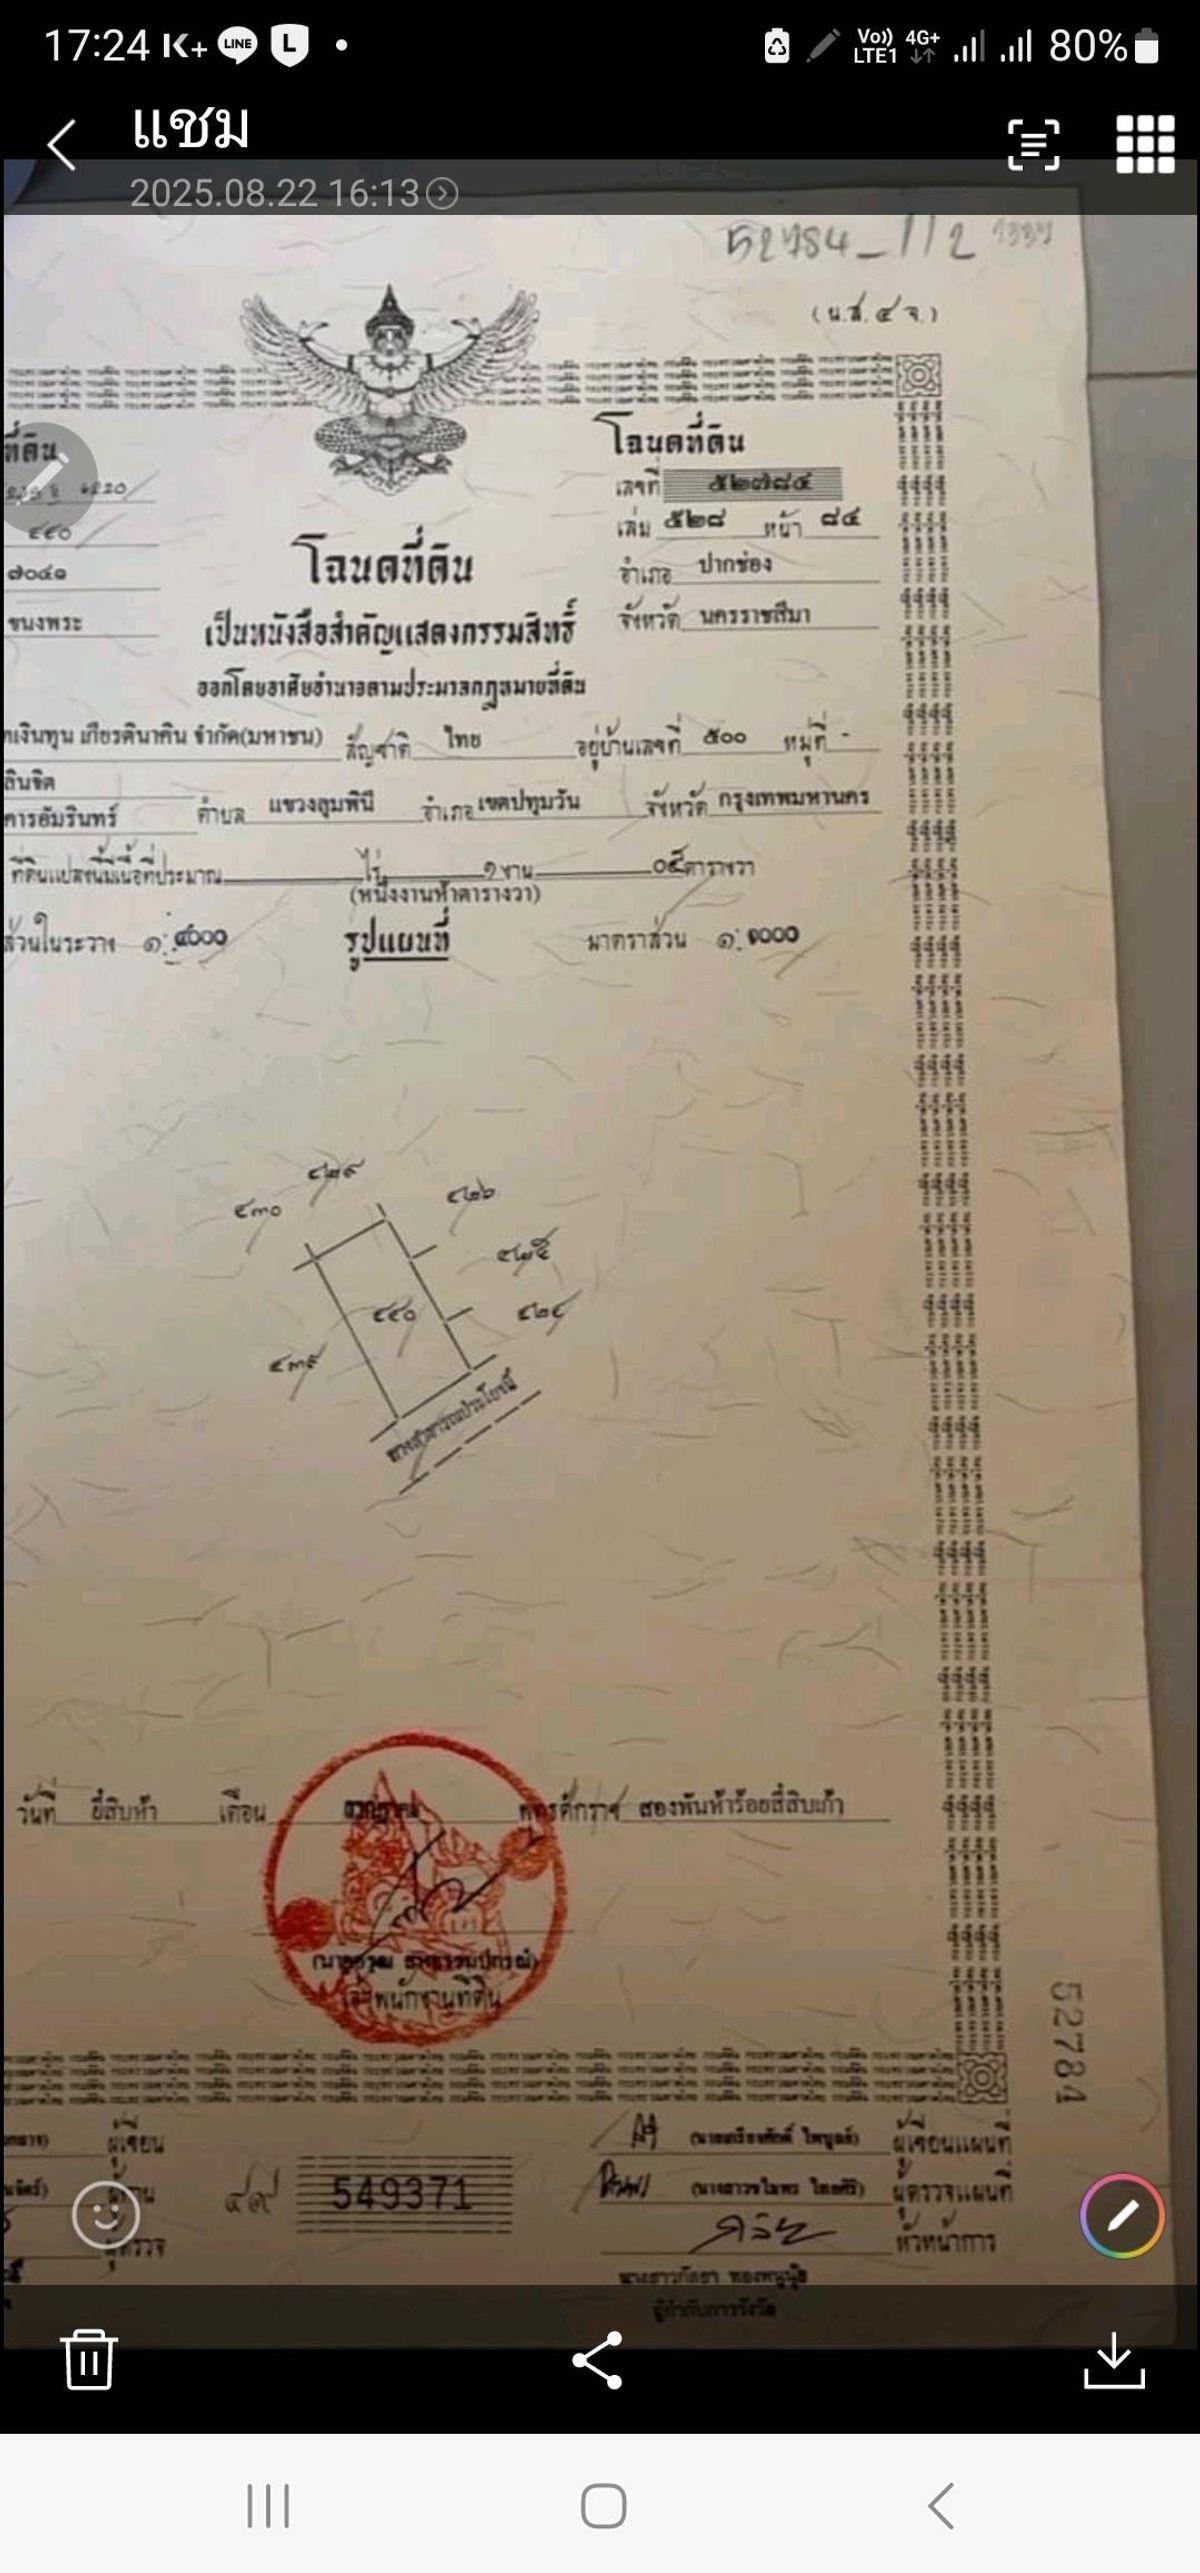 17:24 K+ LINE L • Vo)) LTE1 4G+ 80%
แชม
2025.08.22 16:13
52784_112
(น.ส.๔ จ.)
ที่ดิน
๔๔๐
๗๐๔๑
ขนงพระ
โฉนดที่ดิน
เลขที่ ๕๒๗๘๔
เล่ม ๕๒๘ หน้า ๘๔
อำเภอ ปากช่อง
จังหวัด นครราชสีมา
โฉนดที่ดิน
เป็นหนังสือสำคัญแสดงกรรมสิทธิ์
ออกโดยอาศัยอำนาจตามประมวลกฎหมายที่ดิน
เงินทุน เกียรตินาคิน จำกัด(มหาชน) สัญชาติ ไทย อยู่บ้านเลขที่ ๕๐๐ หมู่ที่ -
ลินจิต
คารอัมรินทร์ ตำบล แขวงลุมพินี อำเภอ เขตปทุมวัน จังหวัด กรุงเทพมหานคร
ที่ดินแปลงนี้มีเนื้อที่ประมาณ ไร่ ๑ งาน ๐๕ ตารางวา
(หนึ่งงานห้าตารางวา)
ส่วนในระวาง ๑:๔๐๐๐ รูปแผนที่ มาตราส่วน ๑:๑๐๐๐
๔๒๙
๔๓๐ ๔๒๖
๔๒๕
๔๔๐ ๔๒๔
๔๓๙
ทางสาธารณประโยชน์
วันที่ ยี่สิบห้า เดือน พุทธศักราช สองพันห้าร้อยสี่สิบเก้า
เจ้าพนักงานที่ดิน
52784
ผู้เขียน ผู้เขียนแผนที่
549371 ผู้ตรวจแผนที่
ผู้ตรวจ หัวหน้าการ
ผู้กำกับการรังวัด